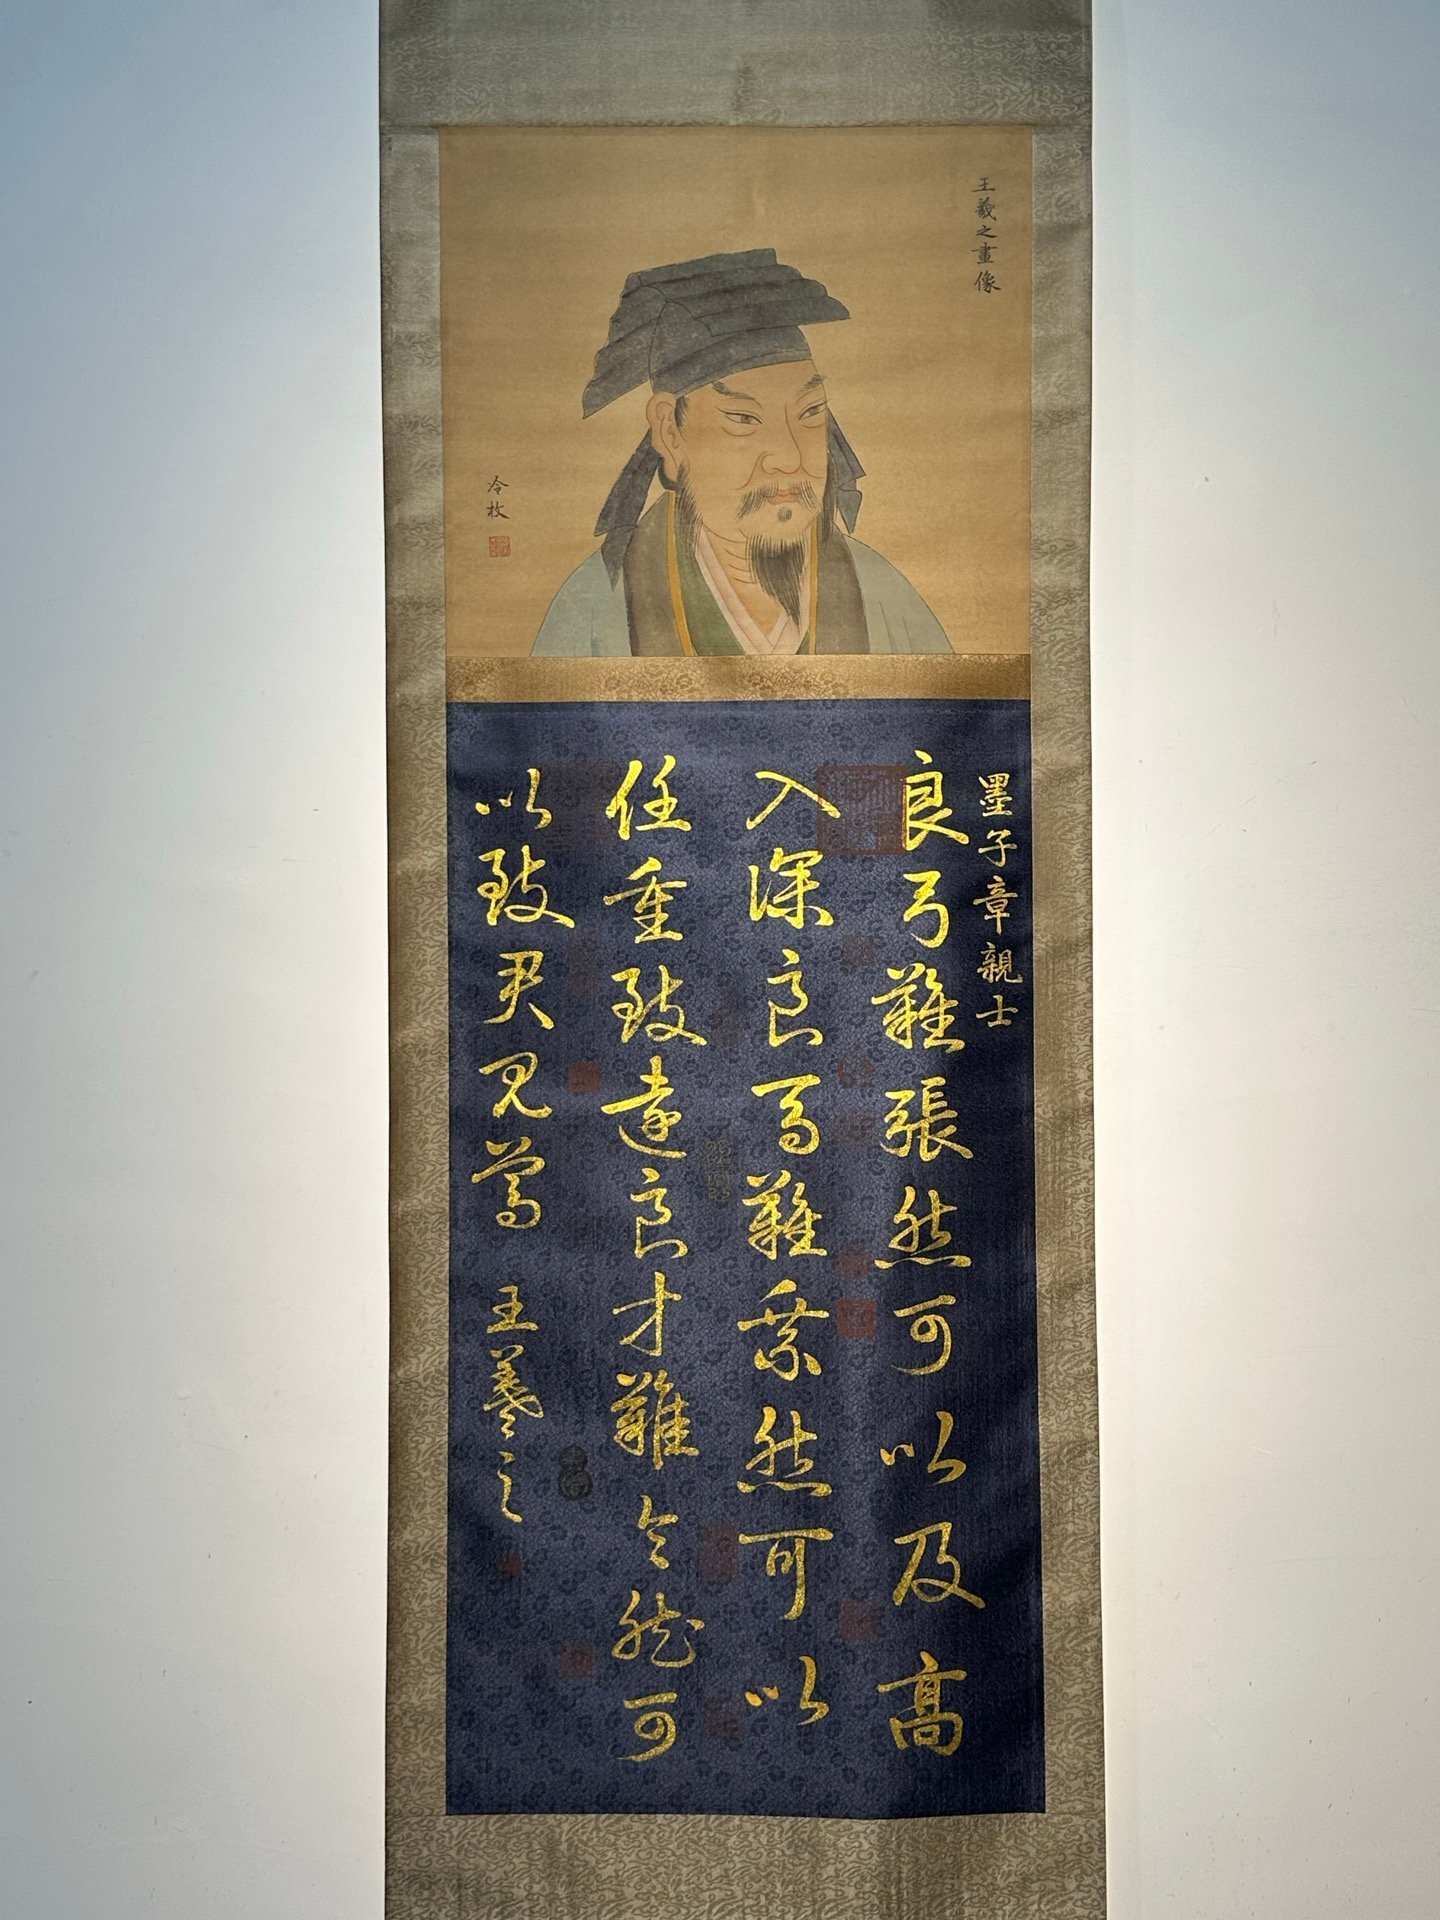 王羲之畫像
冷枚
墨子章親士
良弓難張然可以及高
入深良馬難乘然可以
任重致遠良才難令然可
以致君見尊
王羲之